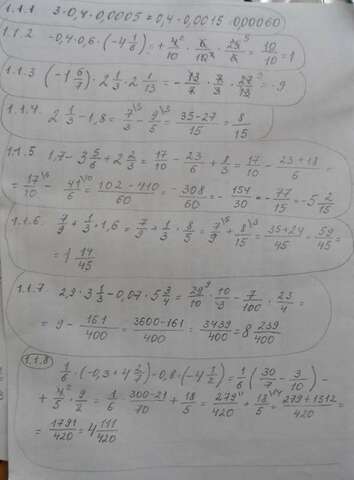 1.1.1 3·0,4·0,0005=0,4·0,0015=0,00060
1.1.2 -0,4·0,6·(-4 1/6)=+4/10·6/10·25/6=10/10=1
1.1.3 (-1 6/7)·2 1/3·2 1/13=-13/7·7/3·27/13=-9
1.1.4. 2 1/3-1,8=7/3-9/5=(35-27)/15=8/15
1.1.5 1,7-3 5/6+2 2/3=17/10-23/6+8/3=17/10-(23+18)/6=
=17/10-41/6=(102-410)/60=-308/60=-154/30=-77/15=-5 2/15
1.1.6. 7/9+1/3·1,6=7/9+1/3·8/5=7/9+8/15=(35+24)/45=59/45=
=1 14/45
1.1.7 2,9·3 1/3-0,07·5 3/4=29/10·10/3-7/100·23/4=
=9-161/400=(3600-161)/400=3439/400=8 239/400
1.1.8
1/6·(-0,3+4 2/7)-0,8·(-4 1/2)=1/6(30/7-3/10)-
+4/5·9/2=1/6·(300-21)/70+18/5=279/420+18/5=(279+1512)/420=
=1791/420=4 111/420